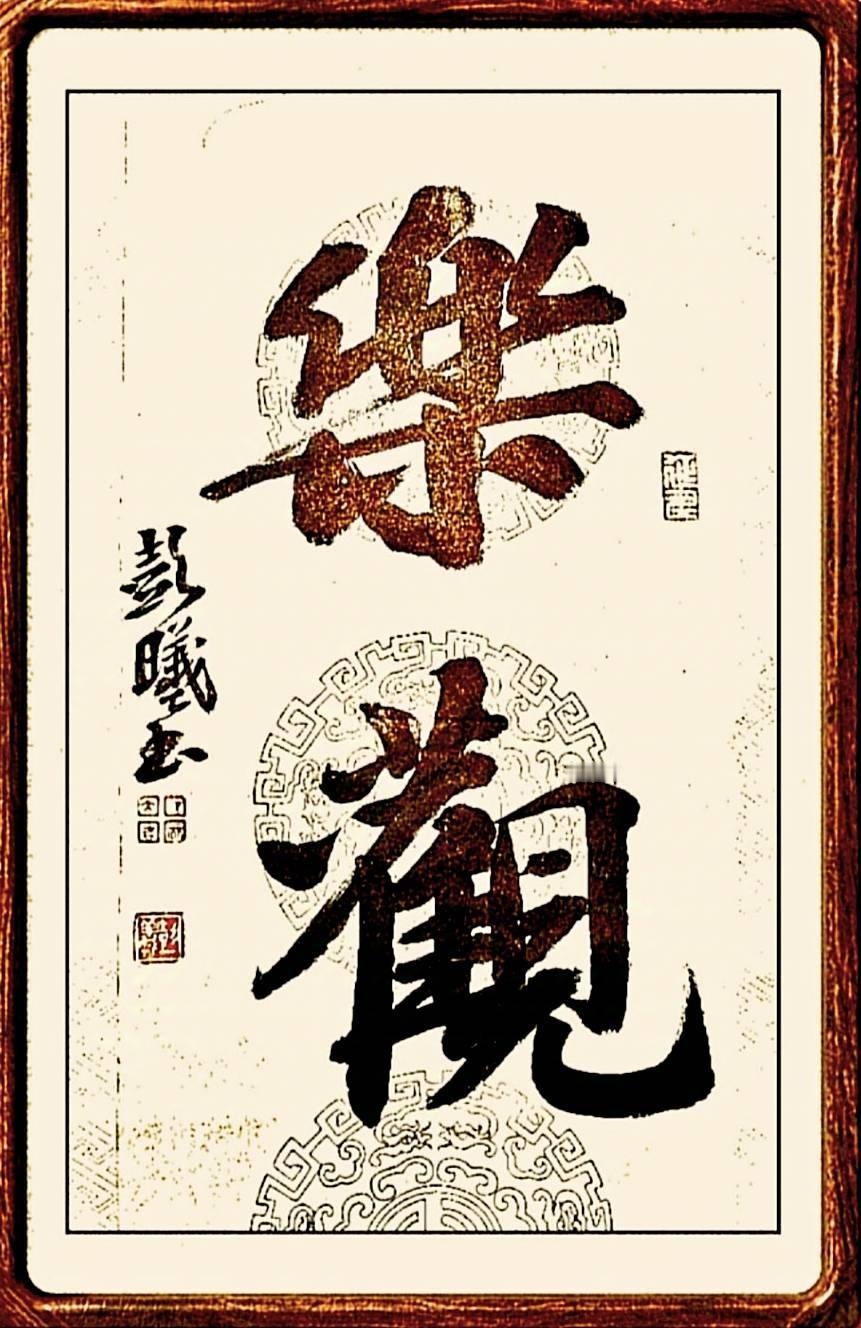 樂觀
彭曦书